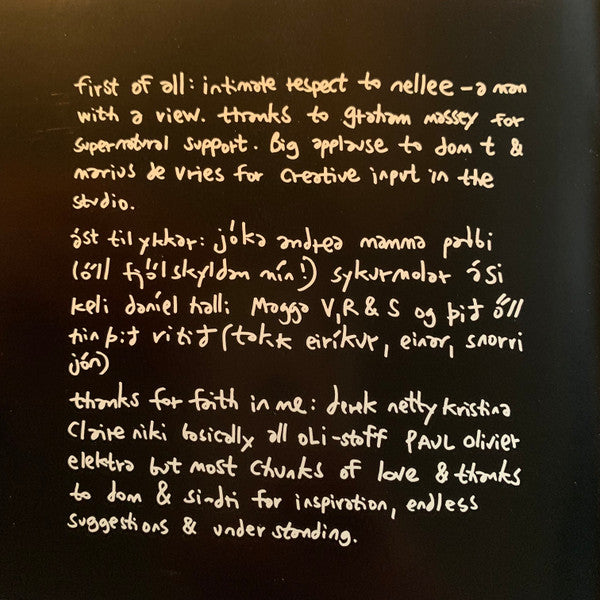 first of all: intimate respect to nellee - a man
with a view. thanks to graham massey for
supernatural support. Big applause to dom t &
marius de vries for creative input in the
studio.
ást til ykkar: jóka andrea mamma pabbi
(öll fjölskyldan mín!) sykurmolar ósi
keli daníel halli Magga V, R & S og þið öll
hin þið vitið (takk eiríkur, einar, snorri
jón)
thanks for faith in me: derek netty kristina
Claire niki basically all oLi-staff PAUL olivier
elektra but most chunks of love & thanks
to dom & sindri for inspiration, endless
suggestions & understanding.